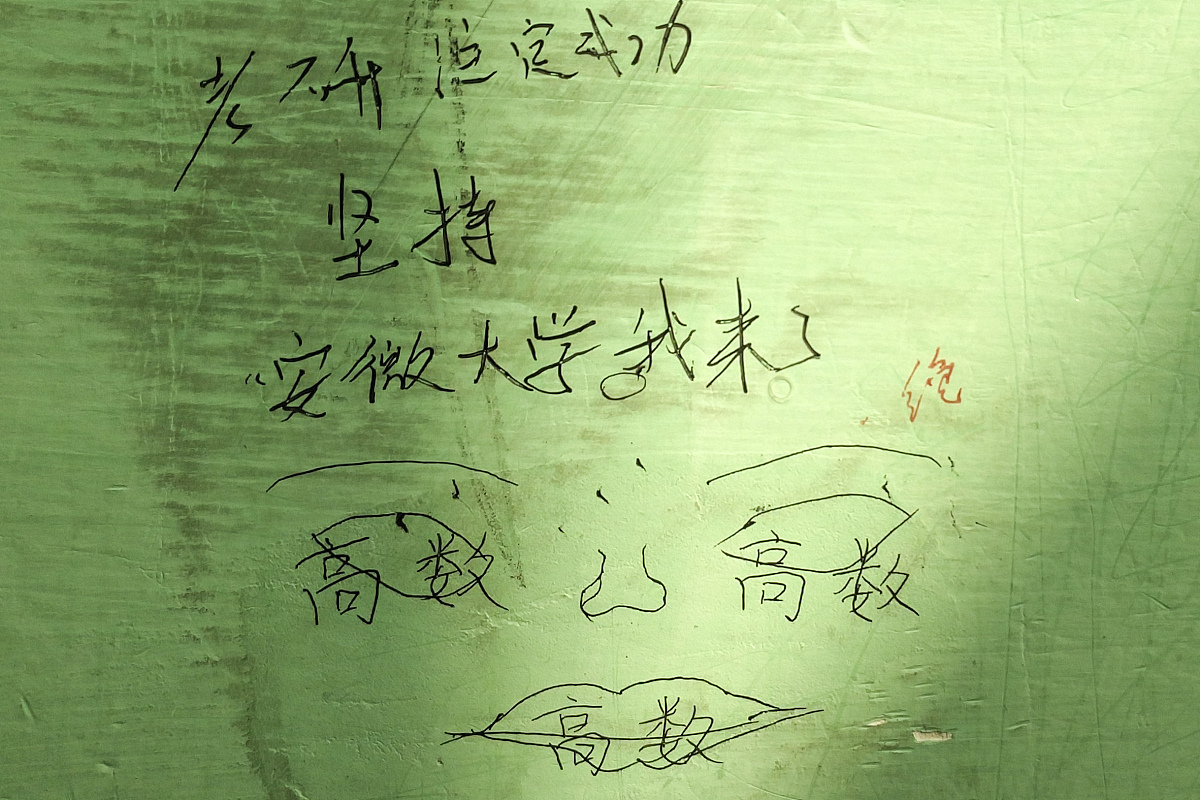 考研一定成功
坚持
“安微大学我来了
绝
高数
高数
高数